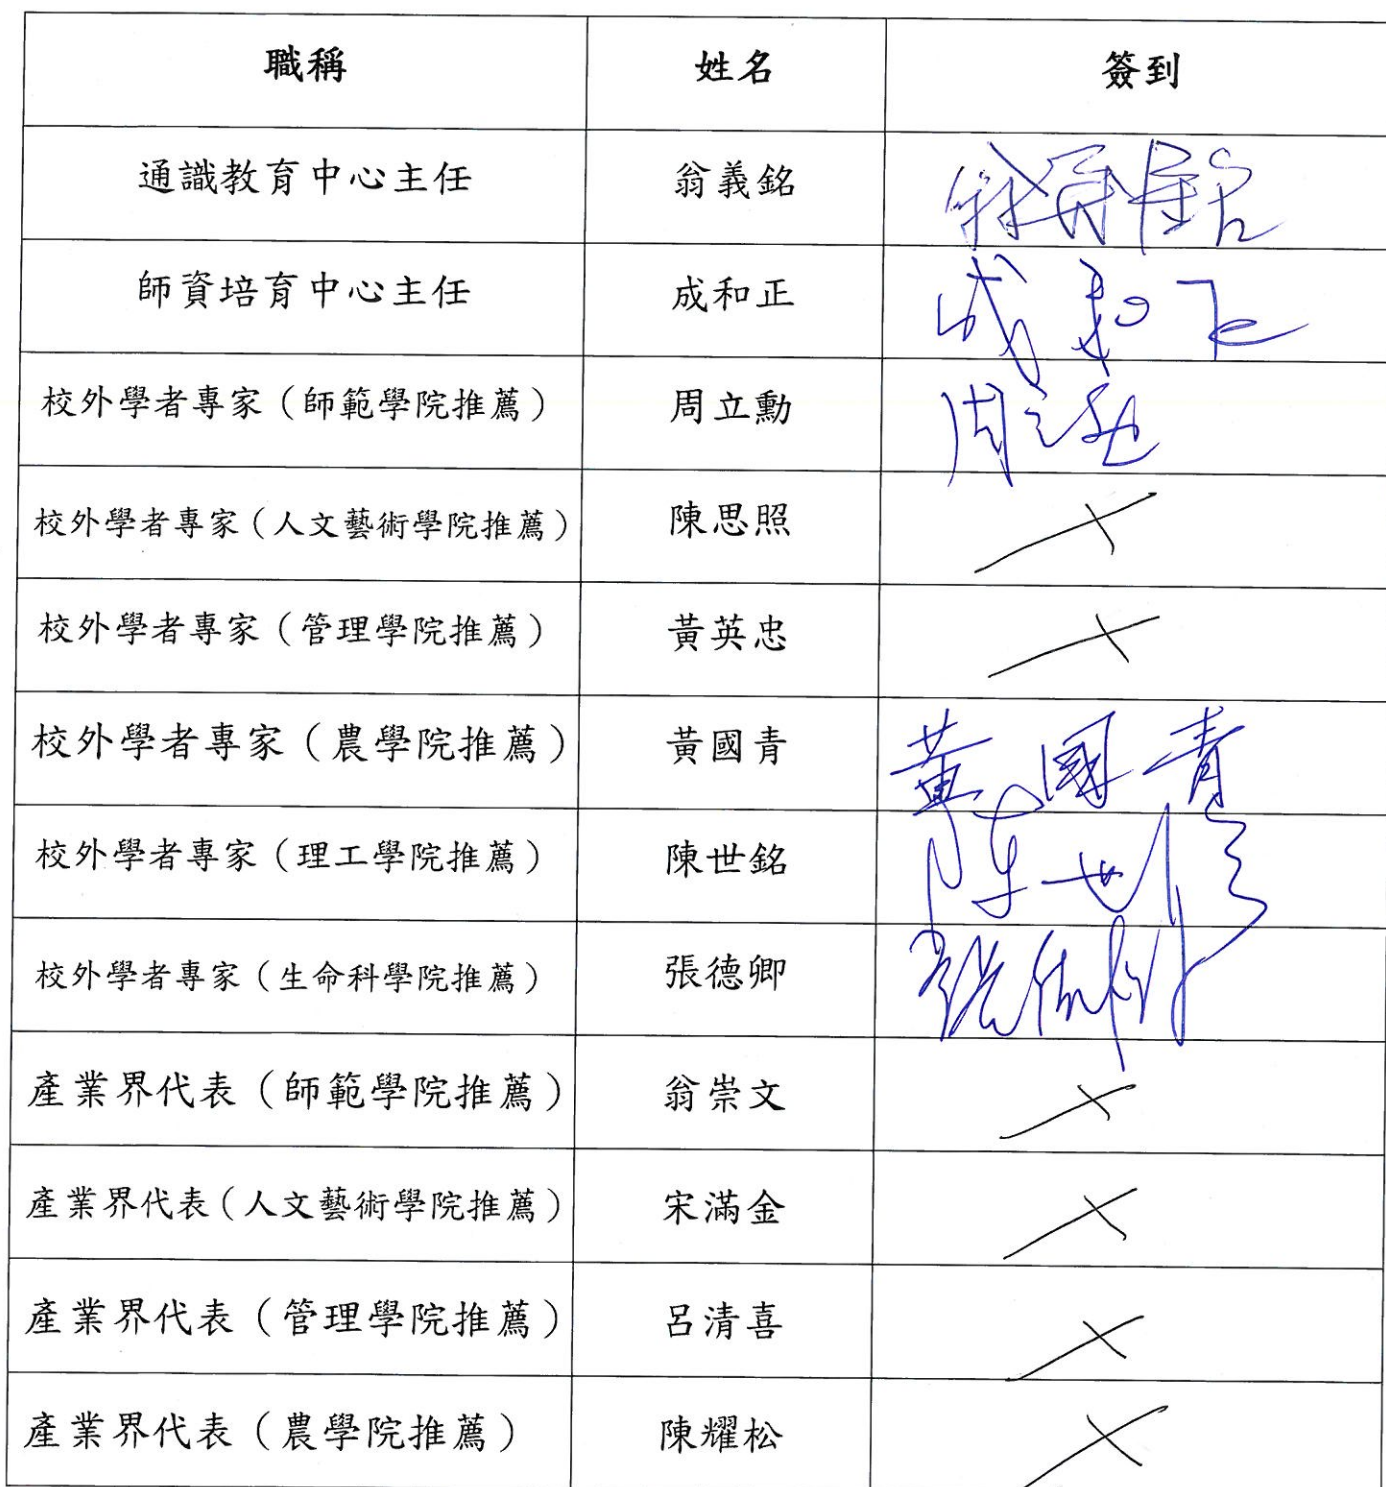 職稱 姓名 簽到
通識教育中心主任 翁義銘 翁義銘
師資培育中心主任 成和正 成和正
校外學者專家（師範學院推薦） 周立勳 周立勳
校外學者專家（人文藝術學院推薦） 陳思照
校外學者專家（管理學院推薦） 黃英忠
校外學者專家（農學院推薦） 黃國青 黃國青
校外學者專家（理工學院推薦） 陳世銘 陳世銘
校外學者專家（生命科學院推薦） 張德卿 張德卿
產業界代表（師範學院推薦） 翁崇文
產業界代表（人文藝術學院推薦） 宋滿金
產業界代表（管理學院推薦） 呂清喜
產業界代表（農學院推薦） 陳耀松